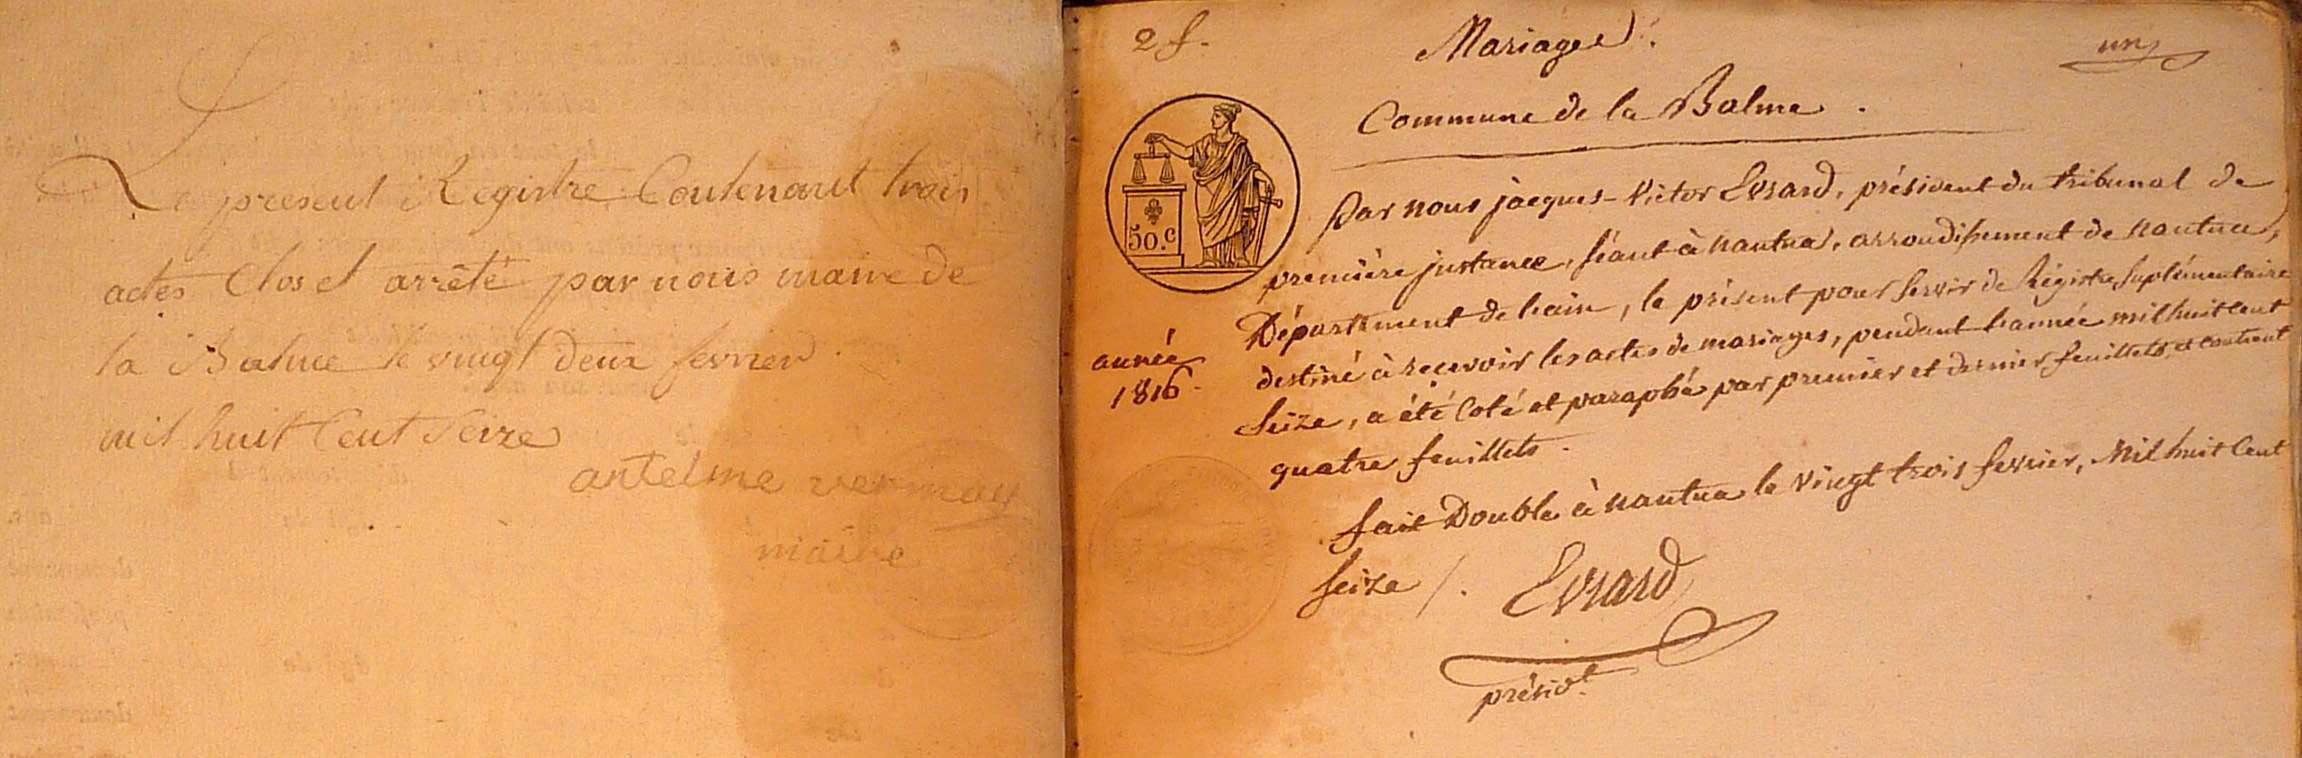 Le present Registre Contenant trois
actes Clos et arrêté par nous maire de
la Balme le vingt deux fevrier
mil huit Cent Seize
antelme
maire
2 f.
Mariages.
un
Commune de la Balme.
50.c
année
1816
Par nous jacques-Victor Evrard, président du tribunal de
première justance, séant à nantua, arrondissement de nantua,
Département de l'ain, le présent pour servir de Régistre suplémentaire
destiné à recevoir les actes de mariages, pendant l'année mil huit Cent
Seize, a été Coté et paraphé par premier et dernier feuillets, et contient
quatre feuillets.
fait Double à nantua le vingt trois fevrier, Mil huit Cent
Seize /.
Evrard
présidt.